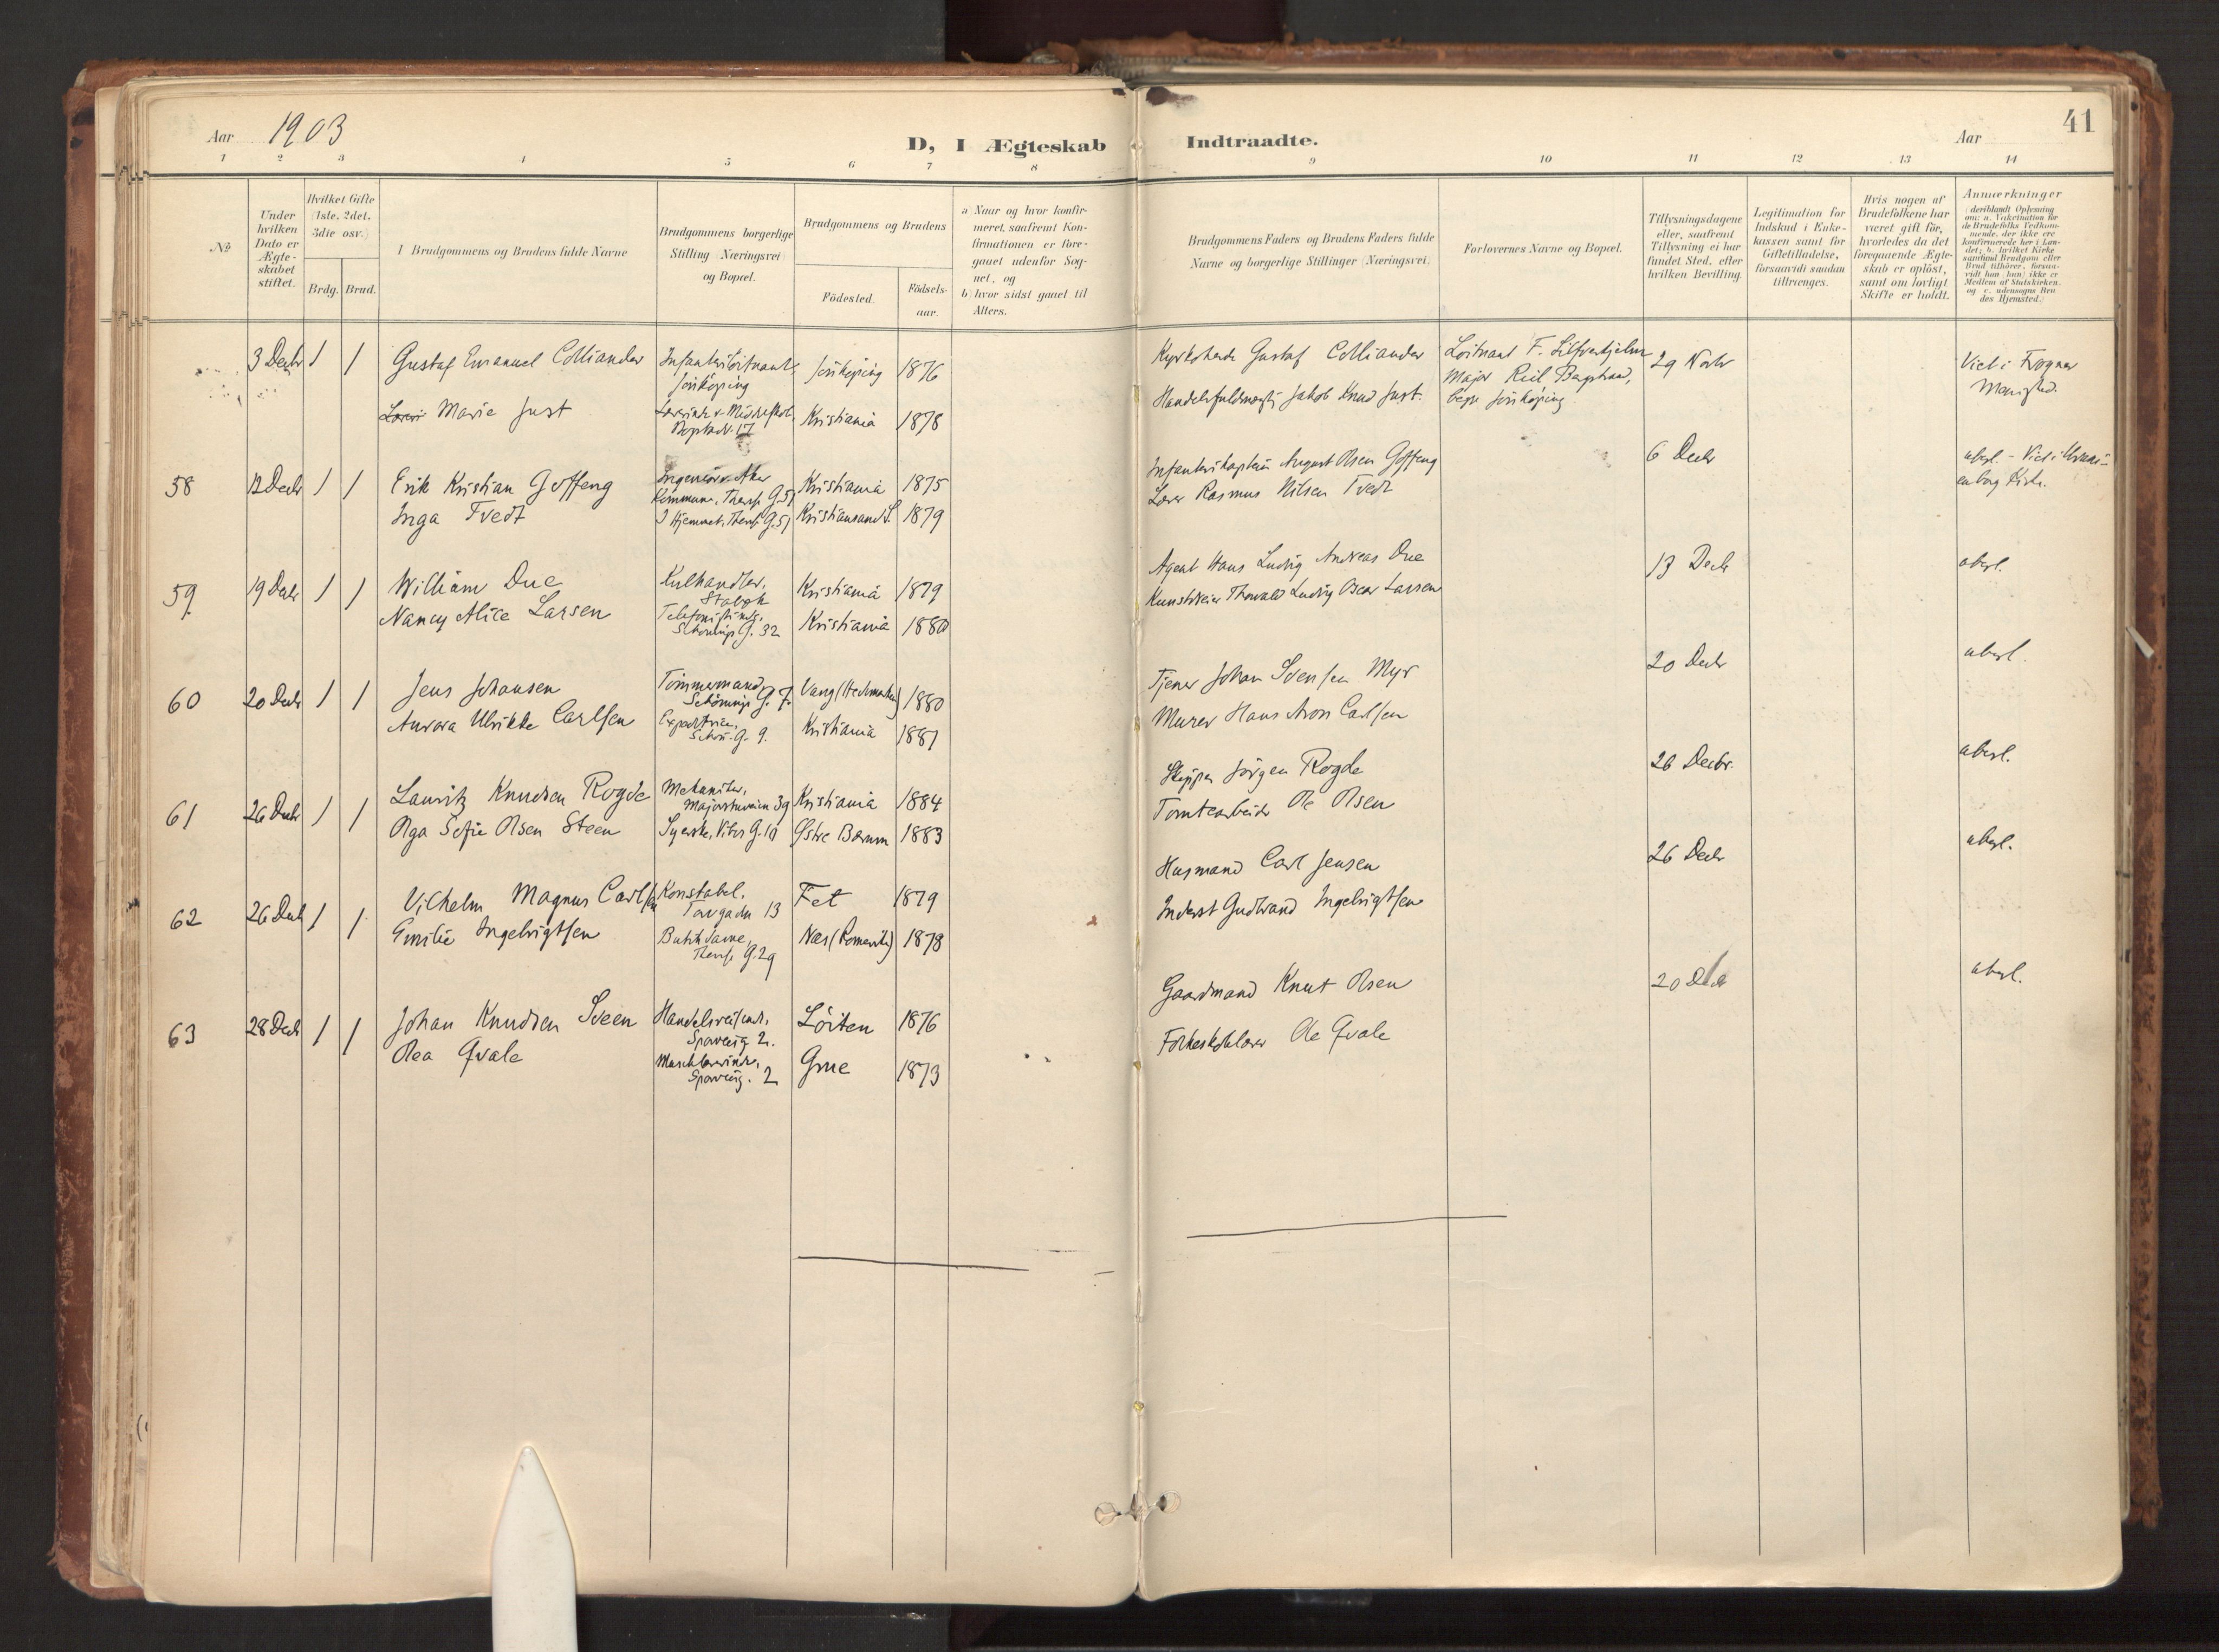 Aar 1903
D, I Ægteskab Indtraadte.
Aar
41
1 2 3 4 5 6 7 8 9 10 11 12 13 14
No
Under hvilken Dato er Ægteskabet stiftet.
Hvilket Gifte (1ste, 2det, 3die osv.)
Brdg. Brud.
Brudgommens og Brudens fulde Navne
Brudgommens borgerlige Stilling (Næringsvei) og Bopæl.
Brudgommens og Brudens
Födested.
Födsels-aar.
a) Naar og hvor konfir-
meret, saafremt Kon-
firmationen er fore-
gaaet udenfor Sog-
net, og
b) hvor sidst gaaet til
Alters.
Brudgommens Faders og Brudens Faders fulde
Navne og borgerlige Stillinger (Næringsvei)
Forlovernes Navne og Bopæl.
Tillysningsdagene
eller, saafremt
Tillysning ei har
fundet Sted, efter
hvilken Bevilling.
Legitimation for
Indskud i Enke-
kassen samt for
Giftetilladelse,
forsaavidt saadan
tiltrænges.
Hvis nogen af
Brudefolkene har
været gift för,
hvorledes da det
foregaaende Ægte-
skab er oplöst,
samt om lovligt
Skifte er holdt.
Anmærkninger
(deriblandt Oplysning
om: a. Vakcination for
de Brudefolks Vedkom-
mende, der ikke ere
konfirmerede her i Lan-
det; b. hvilket Kirke
samfund Brudgom eller
Brud tilhörer, forsaa-
vidt han (hun) ikke er
Medlem af Statskirken,
og c. udensogns Bru
des Hjemsted.)
3 Decbr 1 1 Gustaf Emanuel Colliander Infanteriløitnant, Jönköping Jönköping 1876
Marie Just Kristiania 1878
Gustaf Colliander
Handelsfuldmægtig Jakob Knud Just.
Löitnant F.
Major
Jönköping.
29 Novbr
Viet i Frogner
Menighed.
58 12 Decbr 1 1 Erik Kristian Goffeng Ingeniör v. Aker Kommune, Theres. G. 51 Kristiania 1875
Inga Tvedt I Hjemmet, Theres. G. 51 Kristiansand S. 1879
Infanterikaptein August Olsen Goffeng
Lærer Rasmus Nilsen Tvedt
6 Decbr
ubesl. - Viet i Urani-
enborg Kirke.
59 19 Decbr 1 1 William Due Kulhandler, Kristiania 1879
Nancy Alice Larsen Telefonistinde, Schønings G. 32 Kristiania 1880
Agent Hans Ludvig Andreas Due
Kunstdreier Thorvald Ludvig Oscar Larsen
13 Decbr
ubesl.
60 20 Decbr 1 1 Jens Johansen Tömmermand, Schönings G. 7. Vang (Hedmarken) 1880
Aurora Ulrikke Carlsen Schøn. G. 9. Kristiania 1881
Tjener Johan Svensen Myr
Murer Hans Aron Carlsen
20 Decbr
ubesl.
61 26 Decbr 1 1 Lauritz Knudsen Rogde Mekaniker, Majorstuveien 39 Kristiania 1884
Olga Sofie Olsen Steen Syerske, Vibes G. 10 Østre Bærum 1883
Skipper Jörgen Rogde
Tomtearbeider Ole Olsen
26 Decbr.
ubesl.
62 26 Decbr 1 1 Vilhelm Magnus Carlsen Konstabel, Torvgaden 13 Fet 1879
Emilie Ingebrigtsen Butikdame, Theres. G. 29 Næs (Romerike) 1878
Husmand Carl Jensen
Inderst Gudbrand Ingebrigtsen
26 Decbr
ubesl.
63 28 Decbr 1 1 Johan Knudsen Sveen Handelsreisende, 2. Löiten 1876
Olea Qvale 2 Grue 1873
Gaardmand Knut Olsen
Folkeskolelærer Ole Qvale
20 Decbr
ubesl.